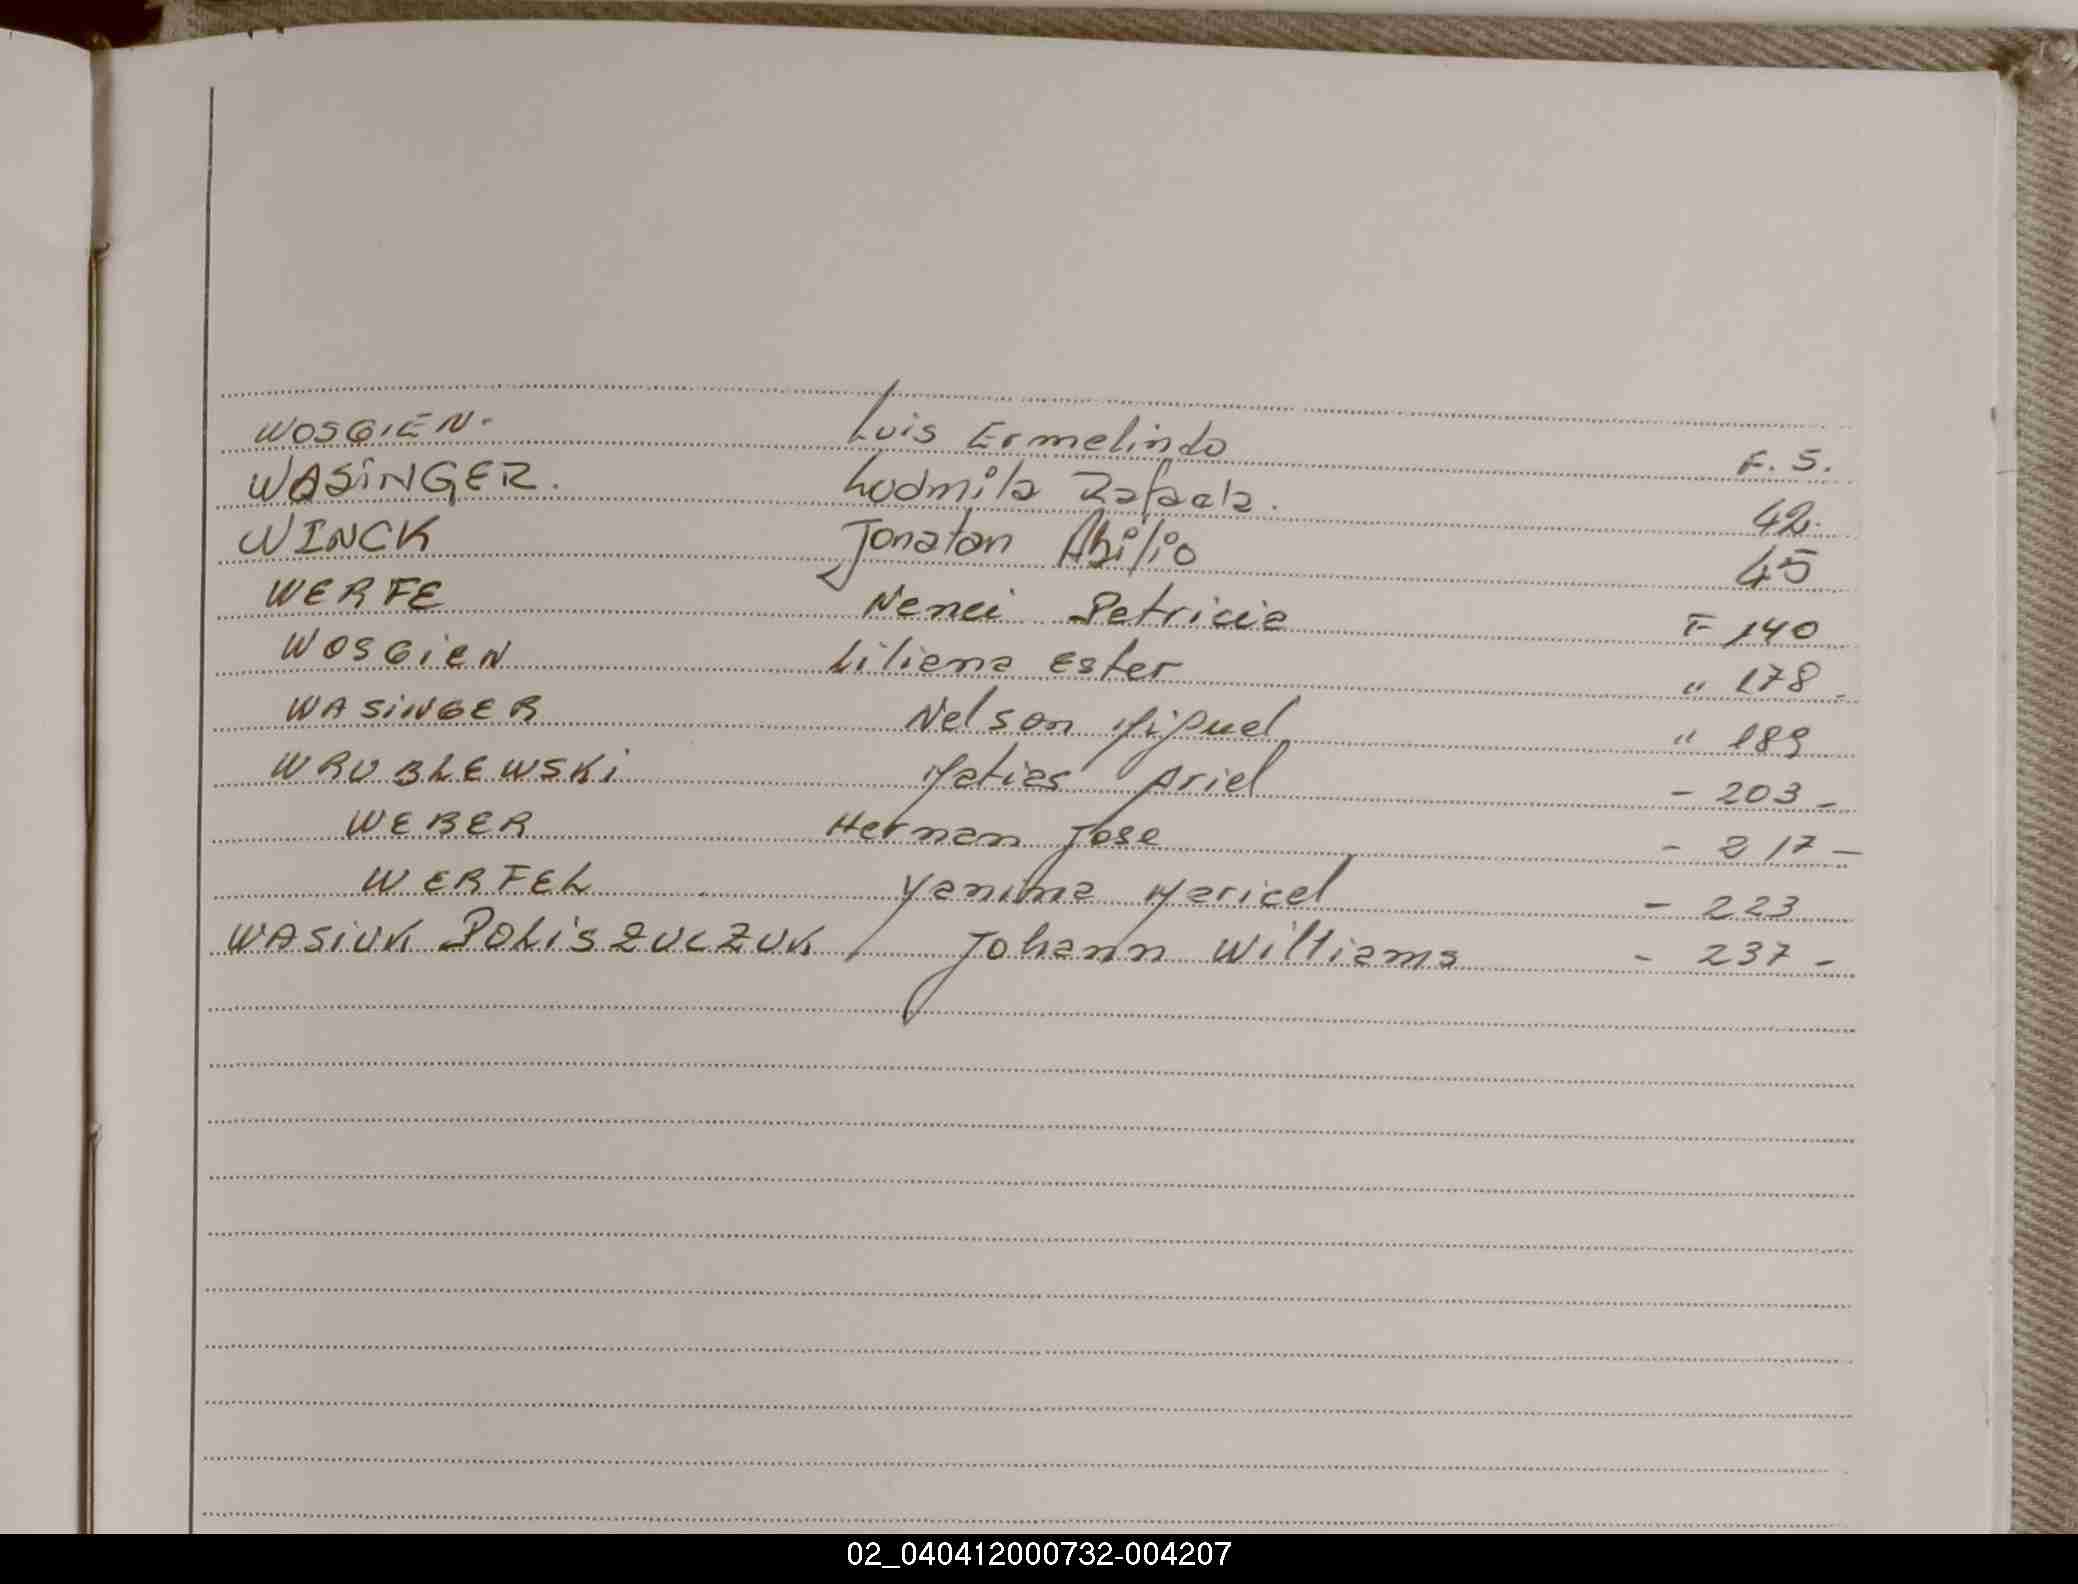 WOSGIEN. Luis Ermelindo F. 5.
WASINGER. Ludmila Rafaela. 42.
WINCK Jonatan Abilio 45
WERFE Nanci Patricia F 140
WOSGIEN Liliana Ester " 178 -
WASINGER Nelson Miguel " 189
WRUBLEWSKI Matias Ariel - 203 -
WEBER Hernan Jose - 217 -
WERFEL Yanina Maricel - 223
WASIUK POLISZUCZUK Johann Williams - 237 -
02_040412000732-004207